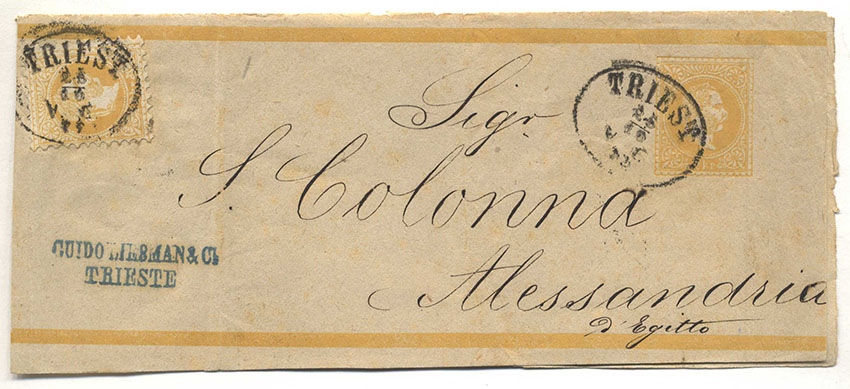 TRIEST
TRIEST
Sigr
S. Colonna
GUIDO LIEBMAN & Co
TRIESTE
Alessandria
d'Egitto